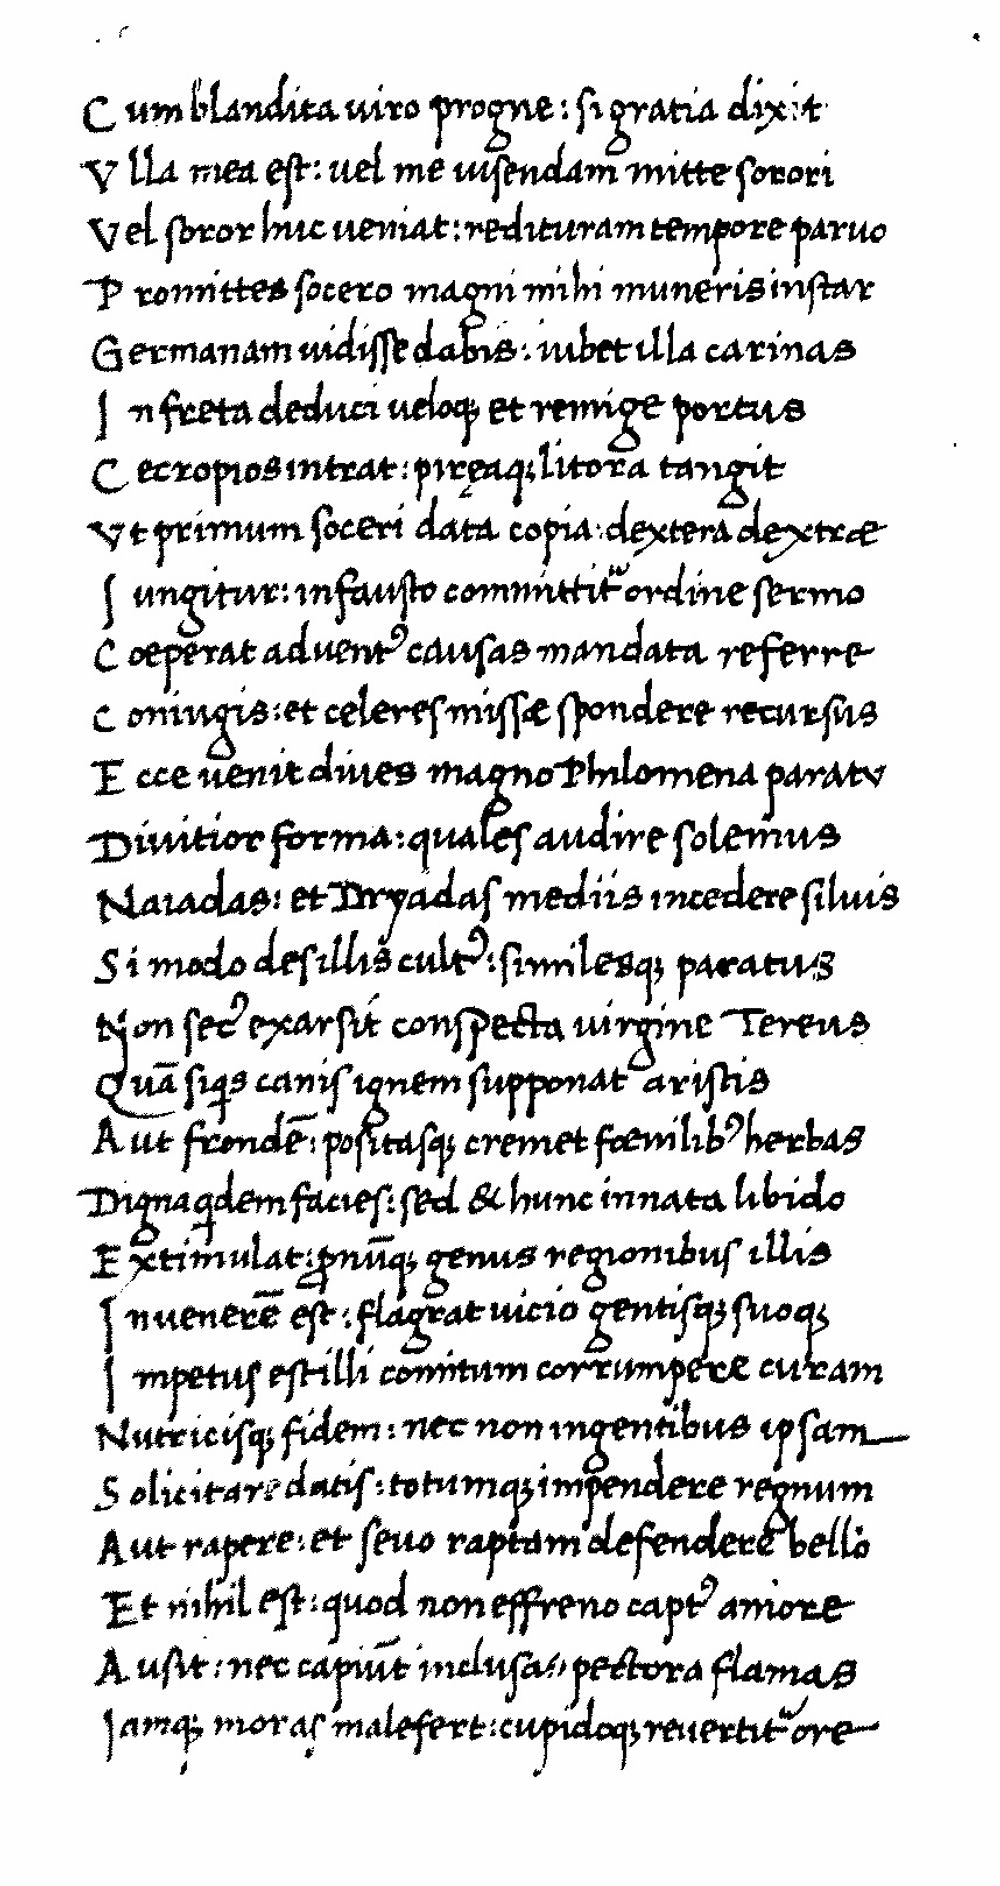 Cum blandita uiro progne: si gratia dixit
Vlla mea est: uel me uisendam mitte sorori
Vel soror huc ueniat: redituram tempore paruo
Promittes socero magni mihi muneris instar
Germanam uidisse dabis: iubet illa carinas
In freta deduci ueloq; et remige portus
Cecropios intrat: piręaq; litora tangit
Vt primum soceri data copia: dextera dextræ
Iungitur: infausto committit᷑ ordine sermo
Coeperat aduentꝰ causas mandata referre
Coniugis: et celeres missæ spondere recursus
Ecce uenit diues magno Philomena paratu
Diuitior forma: quales audire solemus
Naiadas: et Dryadas mediis incedere siluis
Si modo des illis cultꝰ: similesq; paratus
Non secꝰ exarsit conspecta uirgine Tereus
Quā siqis canis ignem supponat aristis
Aut frondē: positasq; cremet fœnilibꝰ herbas
Digna qdem facies: sed & hunc innata libido
Extimulat: ꝓnūq; genus regionibus illis
In uenerē est: flagrat uicio gentisq; suoq;
Impetus est illi comitum corrumpere curam
Nutricisq; fidem: nec non ingentibus ipsam
Solicitare datis: totumq; impendere regnum
Aut rapere: et seuo raptam defendere bello
Et nihil est: quod non effreno captꝰ amore
Ausit: nec capiūt inclusas pectora flamas
Iamq; moras malefert: cupidoq; reuertit᷑ ore